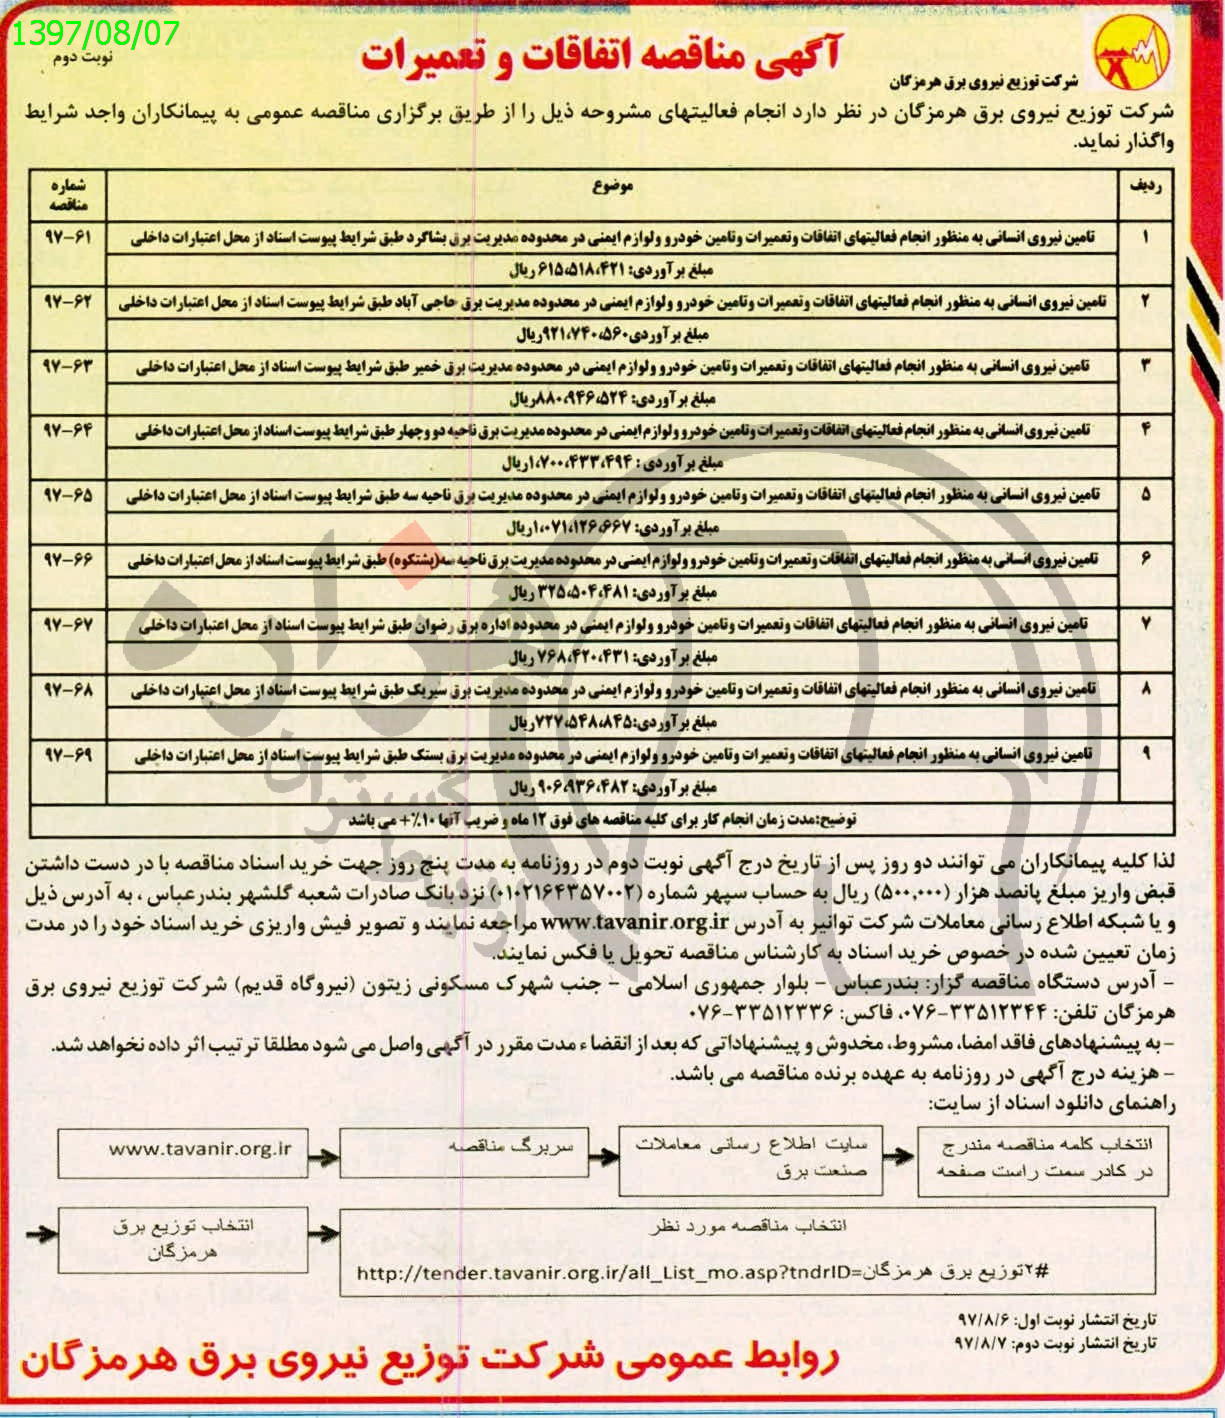 1397/08/07
نوبت دوم
آگهی مناقصه اتفاقات و تعمیرات
شرکت توزیع نیروی برق هرمزگان
شرکت توزیع نیروی برق هرمزگان در نظر دارد انجام فعالیتهای مشروحه ذیل را از طریق برگزاری مناقصه عمومی به پیمانکاران واجد شرایط
واگذار نماید.
ردیف موضوع شماره مناقصه
۱ تامین نیروی انسانی به منظور انجام فعالیتهای اتفاقات وتعمیرات وتامین خودرو ولوازم ایمنی در محدوده مدیریت برق بشاگرد طبق شرایط پیوست اسناد از محل اعتبارات داخلی ۹۷-۶۱
مبلغ برآوردی: ۶۱۵،۵۱۸،۴۲۱ ریال
۲ تامین نیروی انسانی به منظور انجام فعالیتهای اتفاقات وتعمیرات وتامین خودرو ولوازم ایمنی در محدوده مدیریت برق حاجی آباد طبق شرایط پیوست اسناد از محل اعتبارات داخلی ۹۷-۶۲
مبلغ برآوردی۹۲۱،۷۴۰،۵۶۰ریال
۳ تامین نیروی انسانی به منظور انجام فعالیتهای اتفاقات وتعمیرات وتامین خودرو ولوازم ایمنی در محدوده مدیریت برق خمیر طبق شرایط پیوست اسناد از محل اعتبارات داخلی ۹۷-۶۳
مبلغ برآوردی: ۸۸۰،۹۴۶،۵۲۴ریال
۴ تامین نیروی انسانی به منظور انجام فعالیتهای اتفاقات وتعمیرات وتامین خودرو ولوازم ایمنی در محدوده مدیریت برق ناحیه دو وچهار طبق شرایط پیوست اسناد از محل اعتبارات داخلی ۹۷-۶۴
مبلغ برآوردی : ۱،۷۰۰،۴۳۳،۴۹۴ریال
۵ تامین نیروی انسانی به منظور انجام فعالیتهای اتفاقات وتعمیرات وتامین خودرو ولوازم ایمنی در محدوده مدیریت برق ناحیه سه طبق شرایط پیوست اسناد از محل اعتبارات داخلی ۹۷-۶۵
مبلغ برآوردی: ۱،۰۷۱،۱۲۶،۶۶۷ریال
۶ تامین نیروی انسانی به منظور انجام فعالیتهای اتفاقات وتعمیرات وتامین خودرو ولوازم ایمنی در محدوده مدیریت برق ناحیه سه(پشتکوه) طبق شرایط پیوست اسناد از محل اعتبارات داخلی ۹۷-۶۶
مبلغ برآوردی: ۳۲۵،۵۰۴،۴۸۱ ریال
۷ تامین نیروی انسانی به منظور انجام فعالیتهای اتفاقات وتعمیرات وتامین خودرو ولوازم ایمنی در محدوده اداره برق رضوان طبق شرایط پیوست اسناد از محل اعتبارات داخلی ۹۷-۶۷
مبلغ برآوردی: ۷۶۸،۴۲۰،۴۳۱ ریال
۸ تامین نیروی انسانی به منظور انجام فعالیتهای اتفاقات وتعمیرات وتامین خودرو ولوازم ایمنی در محدوده مدیریت برق سیریک طبق شرایط پیوست اسناد از محل اعتبارات داخلی ۹۷-۶۸
مبلغ برآوردی:۷۲۷،۵۴۸،۸۴۵ریال
۹ تامین نیروی انسانی به منظور انجام فعالیتهای اتفاقات وتعمیرات وتامین خودرو ولوازم ایمنی در محدوده مدیریت برق بستک طبق شرایط پیوست اسناد از محل اعتبارات داخلی ۹۷-۶۹
مبلغ برآوردی: ۹۰۶،۹۳۶،۴۸۲ ریال
توضیح:مدت زمان انجام کار برای کلیه مناقصه های فوق ۱۲ ماه و ضریب آنها ۱۰٪+ می باشد
لذا کلیه پیمانکاران می توانند دو روز پس از تاریخ درج آگهی نوبت دوم در روزنامه به مدت پنج روز جهت خرید اسناد مناقصه با در دست داشتن
قبض واریز مبلغ پانصد هزار (۵۰۰,۰۰۰) ریال به حساب سپهر شماره (۰۱۰۲۱۶۴۳۵۷۰۰۲) نزد بانک صادرات شعبه گلشهر بندرعباس ، به آدرس ذیل
و یا شبکه اطلاع رسانی معاملات شرکت توانیر به آدرس www.tavanir.org.ir مراجعه نمایند و تصویر فیش واریزی خرید اسناد خود را در مدت
زمان تعیین شده در خصوص خرید اسناد به کارشناس مناقصه تحویل یا فکس نمایند.
- آدرس دستگاه مناقصه گزار: بندرعباس - بلوار جمهوری اسلامی - جنب شهرک مسکونی زیتون (نیروگاه قدیم) شرکت توزیع نیروی برق
هرمزگان تلفن: ۳۳۵۱۲۳۴۴-۰۷۶، فاکس: ۳۳۵۱۲۳۳۶-۰۷۶
- به پیشنهادهای فاقد امضا، مشروط، مخدوش و پیشنهاداتی که بعد از انقضاء مدت مقرر در آگهی واصل می شود مطلقا ترتیب اثر داده نخواهد شد.
- هزینه درج آگهی در روزنامه به عهده برنده مناقصه می باشد.
راهنمای دانلود اسناد از سایت:
www.tavanir.org.ir
سربرگ مناقصه
سایت اطلاع رسانی معاملات
صنعت برق
انتخاب کلمه مناقصه مندرج
در کادر سمت راست صفحه
انتخاب توزیع برق
هرمزگان
انتخاب مناقصه مورد نظر
http://tender.tavanir.org.ir/all_List_mo.asp?tndrID=توزیع برق هرمزگان۲#
تاریخ انتشار نوبت اول: ۹۷/۸/۶
تاریخ انتشار نوبت دوم: ۹۷/۸/۷
روابط عمومی شرکت توزیع نیروی برق هرمزگان
هزاره